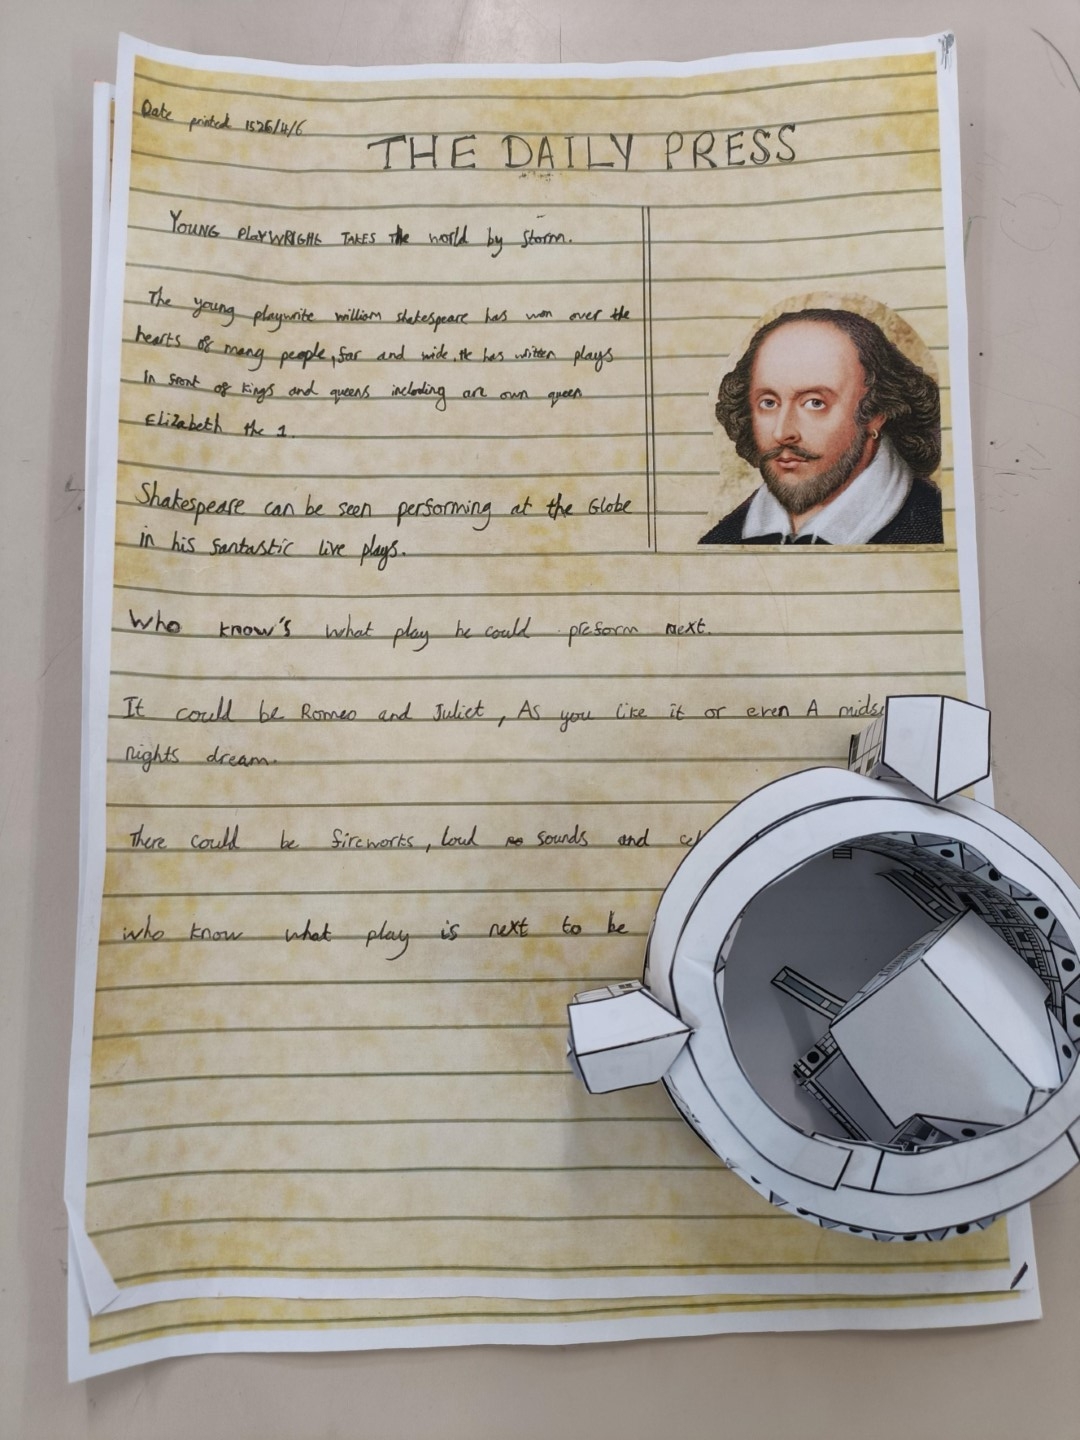 Date printed 1526/4/6
THE DAILY PRESS
YOUNG PLAYWRIGHT TAKES The world by Storm.
The young playwrite william shakespeare has won over the
hearts of many people, far and wide. He has written plays
In front of Kings and queens including are own queen
Elizabeth the 1.
Shakespeare can be seen performing at the Globe
in his fantastic live plays.
Who know's what play he could preform next.
It could be Romeo and Juliet, As you like it or even A mids
nights dream.
There could be fireworks, loud sounds and
who know what play is next to be